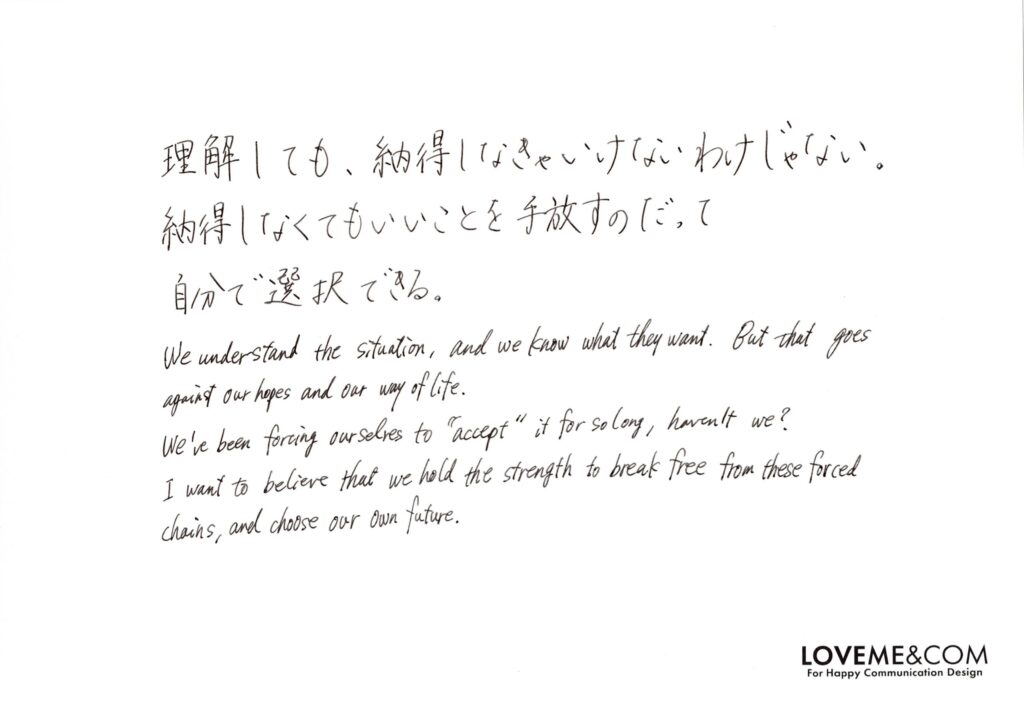 理解しても、納得しなきゃいけないわけじゃない。
納得しなくてもいいことを手放すのだって
自分で選択できる。
We understand the situation, and we know what they want. But that goes
against our hopes and our way of life.
We've been forcing ourselves to "accept" it for so long, haven't we?
I want to believe that we hold the strength to break free from these forced
chains, and choose our own future.
LOVEME&COM
For Happy Communication Design